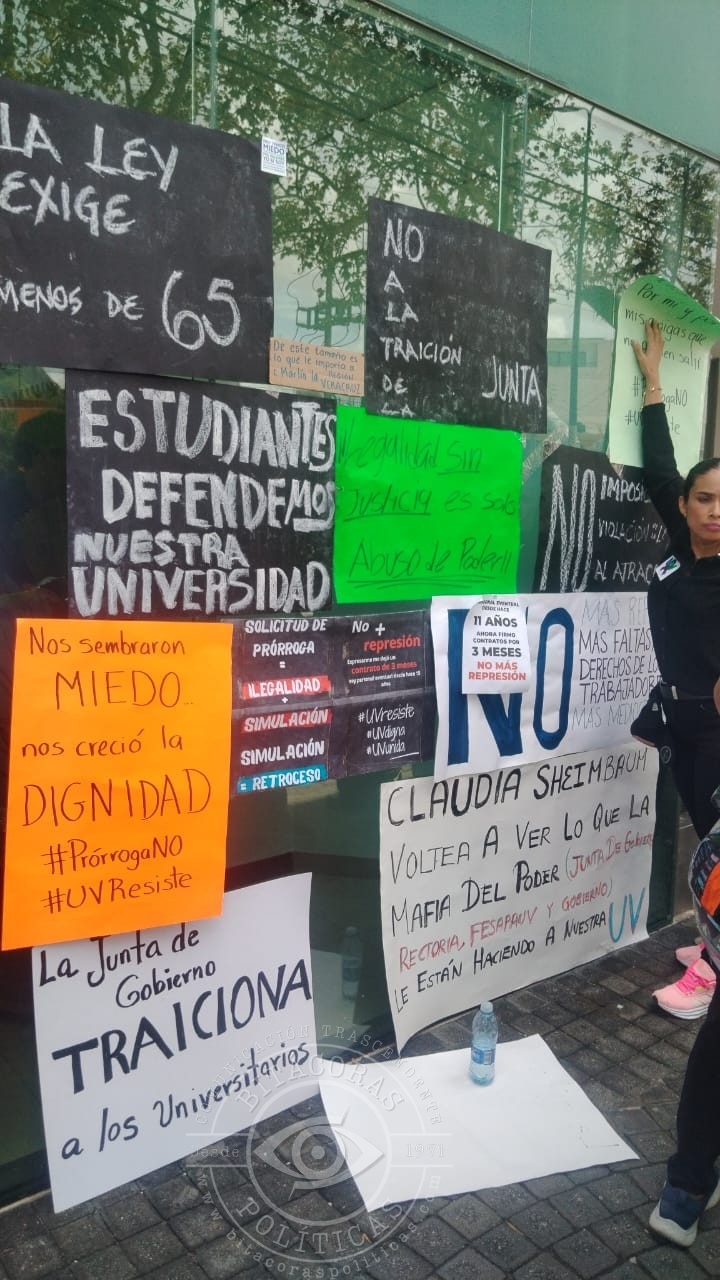 LA LEY
EXIGE
MENOS DE 65
MIEDO
NO
A
LA
TRAICIÓN
DE
LA
JUNTA
De este tamaño es
lo que le importa a
Martín la VERACRUZ
Por mi y por
mis amigas que
#PrórrogaNO
ESTUDIANTES
DEFENDEMOS
NUESTRA
UNIVERSIDAD
Legalidad Sin
Justicia es solo
Abuso de Poder!!
NO
VIOLACIÓN
AL
Nos sembraron
MIEDO...
nos creció la
DIGNIDAD
#PrórrogaNO
#UVResiste
SOLICITUD DE
PRÓRROGA
=
ILEGALIDAD
+
SIMULACIÓN
SIMULACIÓN
= RETROCESO
No +
represión
contrato de 3 meses
#UVresiste
#UVdigna
#UVunida
DESDE HACE
11 AÑOS
AHORA FIRMO
CONTRATOS POR
3 MESES
NO MÁS
REPRESIÓN
NO
MAS
MAS FALTAS
DERECHOS DE LOS
TRABAJADORES
CLAUDIA SHEIMBAUM
VOLTEA A VER LO QUE LA
MAFIA DEL PODER (JUNTA DE GOBIERNO
RECTORIA, FESAPAUV Y GOBIERNO)
LE ESTÁN HACIENDO A NUESTRA UV
La Junta de
Gobierno
TRAICIONA
a los Universitarios
COMUNICACIÓN TRASCENDENTE
BITÁCORAS
Desde 1951
POLÍTICAS
www.bitacoraspoliticas.com